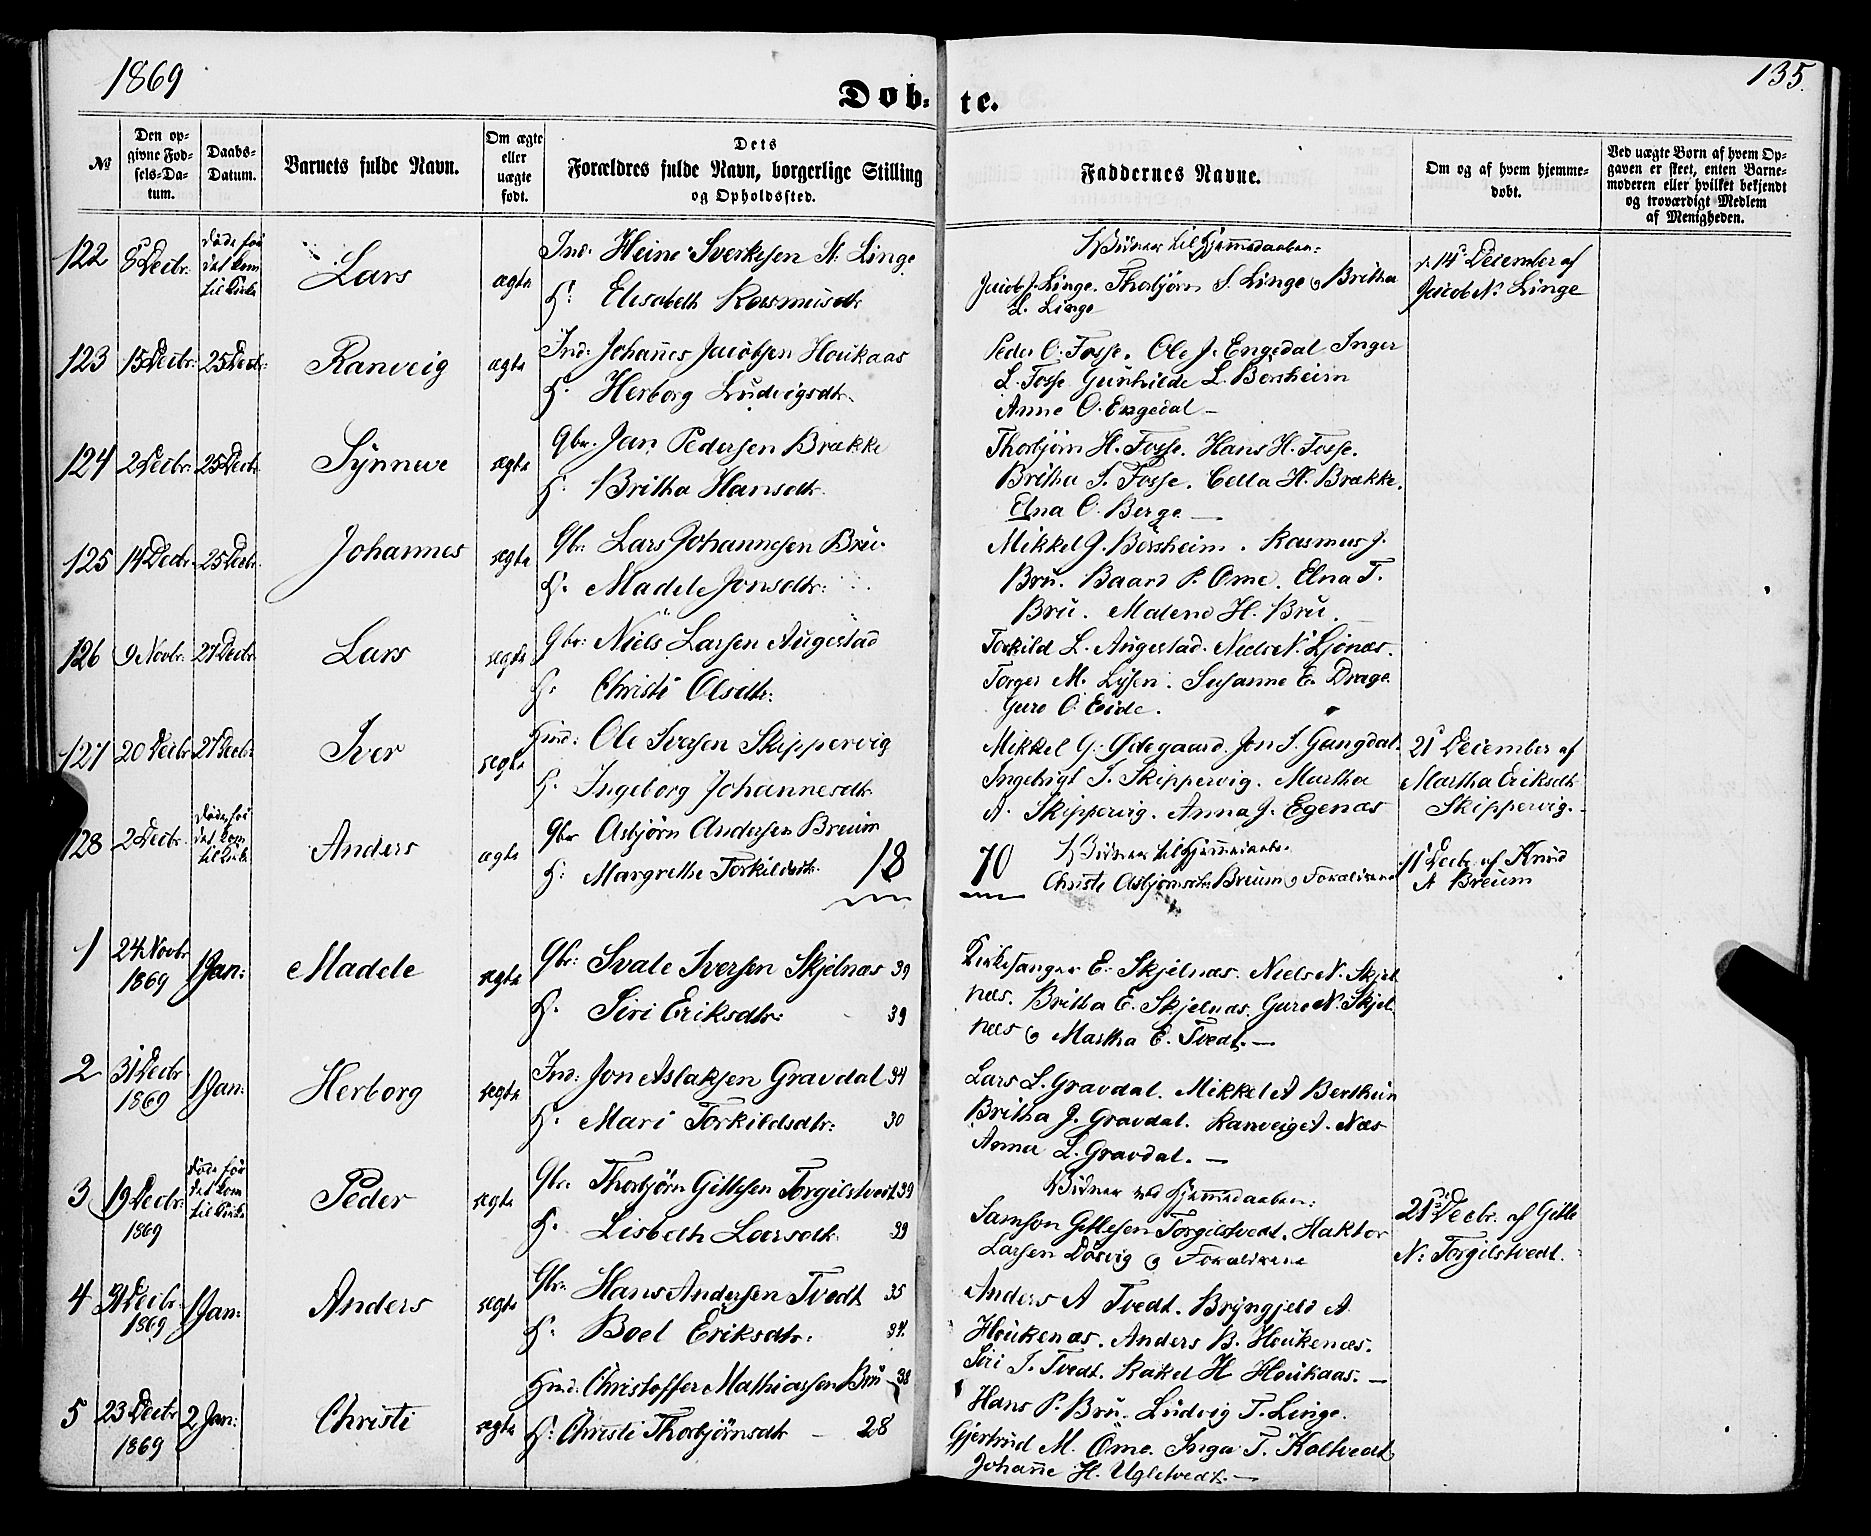 1869
135.
Døb-te.
No
Den opgivne Fødsels-Datum.
Daabs-Datum.
Barnets fulde Navn.
Om ægte eller uægte født.
Dets Forældres fulde Navn, borgerlige Stilling og Opholdssted.
Faddernes Navne.
Om og af hvem hjemmedøbt.
Ved uægte Børn af hvem Opgaven er skeet, enten Barnemoderen eller hvilket bekjendt og troværdigt Medlem af Menigheden.
122 8 Decbr: Døde før det kom til Kirke Lars ægte Ind: Heine Sverkesen N. Linge
H: Elisabeth Rasmusdtr
Vidner til Hjemmedaaben:
Jacob J. Linge. Thorbjørn S. Linge og Britha
L. Linge
14 December af
Jacob N. Linge
123 15 Decbr: 25 Decbr: Ranveig ægte Ind: Johannes Jacobsen Houkaas
H. Herborg Ludvigsdtr.
Peder O. Fosse. Ole J. Engedal Inger
L. Fosse Gunhilde L. Børsheim
Anne O. Engedal —
124 2 Decbr: 25 Decbr Synneve ægte Gbr. Jan Pedersen Brække
H: Britha Hansdtr.
Thorbjørn H. Fosse. Hans H. Fosse.
Britha S. Fosse. Cella H. Brække.
Elna O. Berge —
125 14 Decbr. 25 Decbr. Johannes ægte Gbr: Lars Johannesen Bru.
H. Madele Jonsdtr:
Mikkel J. Børsheim. Rasmus J.
Bru. Baard P. Ome. Elna T.
Bru. Malene H. Bru.
126 9 Novbr: 27 Decbr Lars ægte Gbr: Niels Larsen Augestad
H. Christi Olsdtr:
Torkild L. Augestad. Niels N. Ljonæs.
Torger M. Lysen. Susanne E. Drage.
Guro O. Eide.
127 20 Decbr 27 Decbr Iver ægte Hmd: Ole Iversen Skippervig
H. Ingeborg Johannesdtr
Mikkel G. Ødegaard. Jon S. Gangdal.
Ingebrigt I. Skippervig. Martha
A. Skippervig. Anna J. Egenæs
21 December af
Martha Eriksdtr
Skippervig.
128 2 Decbr. Døde før det kom til Kirke Anders ægte Gbr Asbjørn Andersen Breium
H: Margrethe Torkildsdtr. 18
70 Vidner til Hjemmedaaben
Christi Asbjørnsdtr Breium og Forældrene
11 Decbr. af Knud
A Breium
1 24 Novbr 1869 1 Jan: Madele ægte Gbr: Svale Iversen Skjelnæs 39
H. Siri Eriksdtr: 39
Kirkesanger E. Skjelnæs. Niels N. Skjel
næs. Britha E. Skjelnæs. Guro N. Skjel
næs og Martha E. Tvedt. —
2 31 Decbr 1869 1 Jan: Herborg ægte Ind: Jon Aslaksen Gravdal 34
H. Mari Torkildsdtr: 30
Lars L. Gravdal. Mikkel A Berthun
Britha J. Gravdal. Ranveig A. Næs
Anna L. Gravdal. —
3 19 Decbr: 1869 Døde før det kom til Kirke Peder ægte Gbr Thorbjørn Gitlesen Torgilstvedt 39
H. Lisbeth Larsdtr. 39
Vidner ved Hjemmedaaben:
Samson Gitlesen Torgilstvedt. Haktor
Larsen Døsvig og Forældrene
21 Decbr. af Gitle
N: Torgilstvedt.
4 31 Decbr. 1869 1 Jan: Anders ægte Gbr. Hans Andersen Tvedt 35
H. Boel Eriksdtr: 34.
Anders A Tvedt. Bryngjeld A.
Houkenæs. Anders B. Houkenæs.
Siri T. Tvedt. Rakel H Houkaas. —
5 23 Decbr 1869 2 Jan: Christi ægte Hmd: Christoffer Mathiassen Bru 38
H: Christi Thorbjørnsdtr — 28
Hans P. Bru. Ludvig T. Linge.
Gjertrud M. Ome. Inga T. Koltvedt
Johanne H. Ugletvedt. —